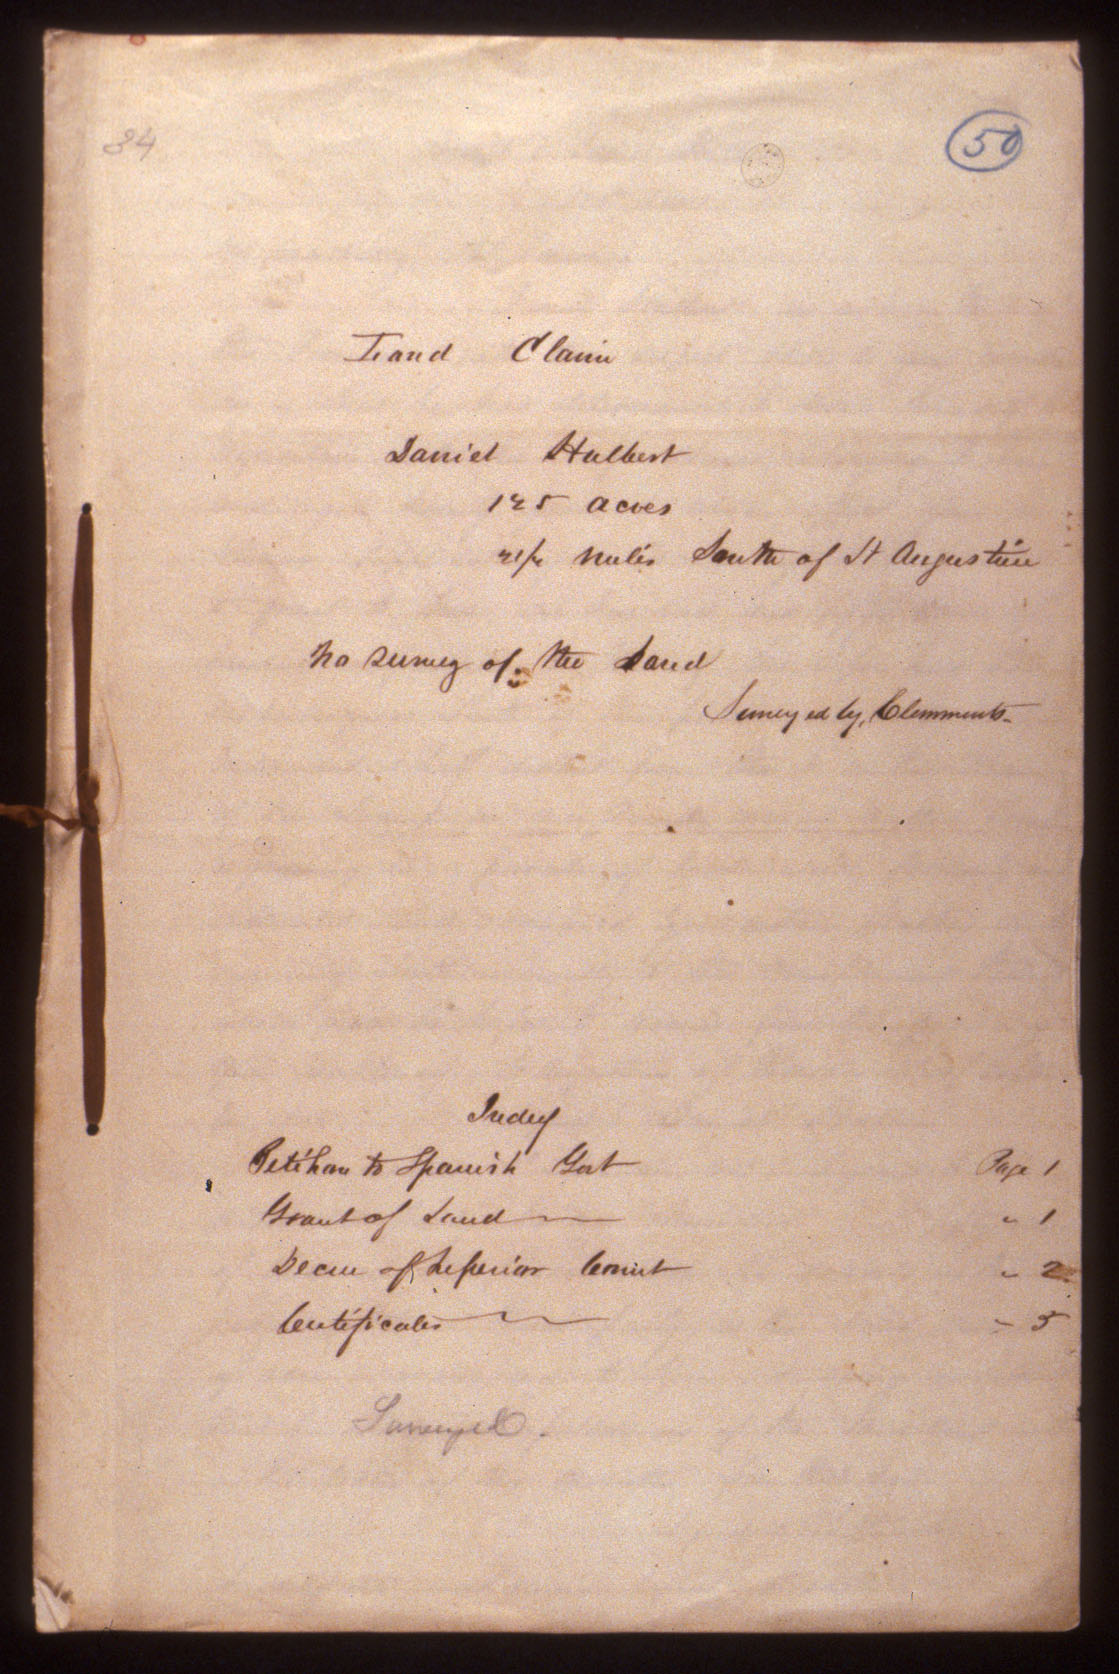 34
50
Land Claim
Daniel Hulbert
125 acres
miles South of St Augustine
No survey of the Land
Surveyed by Clemments
Index
Petition to Spanish Govt Page 1
Grant of Land " 1
Decree of Superior Court " 2
Certificates " 5
Surveyed.